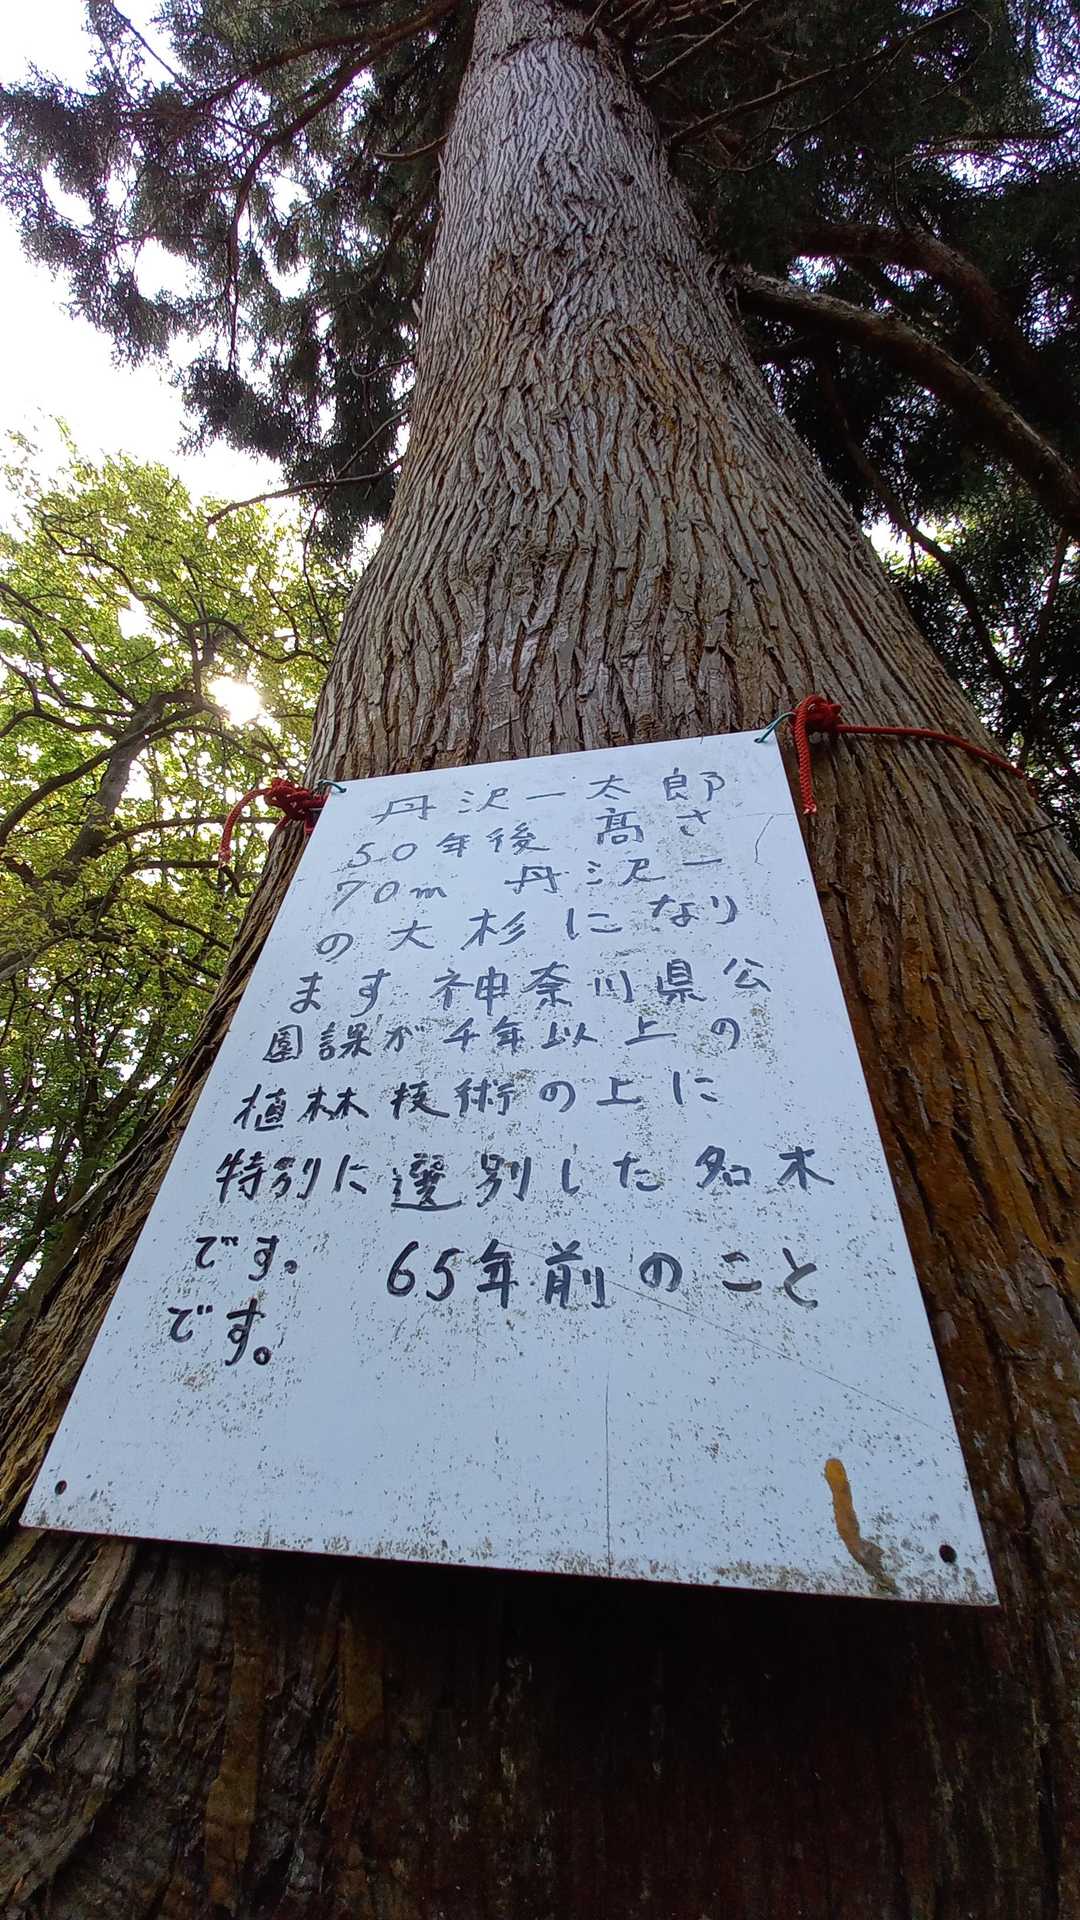 丹沢一太郎
50年後 高さ
70m 丹沢一
の大杉になり
ます神奈川県公
園課が千年以上の
植林技術の上に
特別に選別した名木
です。 65年前のこと
です。